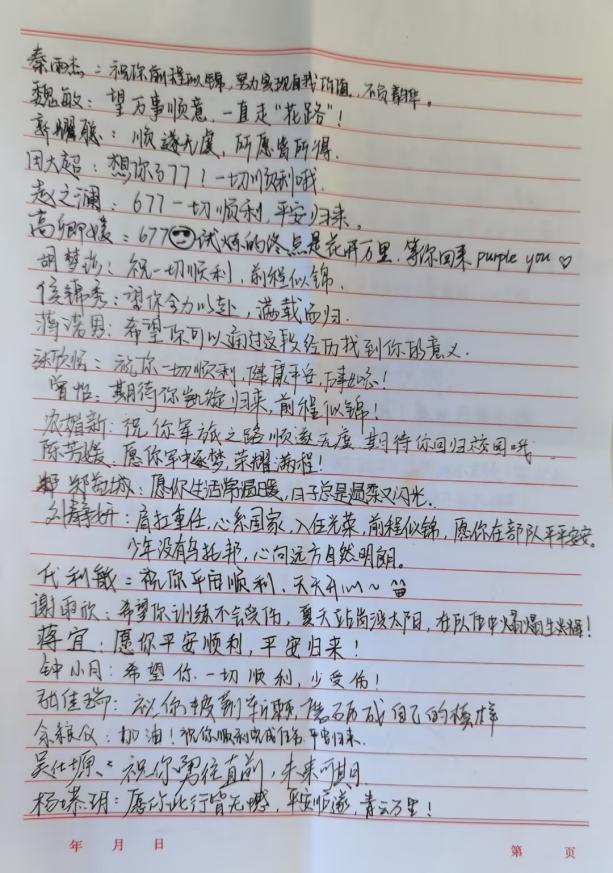 秦雨杰：祝你前程似锦，努力实现自我价值，不负韶华。
魏敏：望万事顺意，一直走“花路”！
郭耀聪：顺遂无虞，所愿皆所得.
田大超：想你了77！一切顺利哦.
赵之澜：677一切顺利，平安归来。
高卿媛：677😎试炼的终点是花开万里，等你回来 purple you ♡
胡梦：祝一切顺利，前程似锦.
侯锦秀：望你全力以赴，满载而归.
蒋诺男：希望你可以通过这段经历找到你的意义.
张欣怡：祝你一切顺利，健康平安，万事如意！
曾怡：期待你凯旋归来，前程似锦！
新：祝你军旅之路顺遂无虞 期待你回归校园哦
陈芳媛：愿你军中逐梦，荣耀满程！
郑：愿你生活常温暖，日子总是温柔又闪光.
刘静妍：肩扛重任，心系国家，入伍光荣，前程似锦，愿你在部队平平安安。
少年没有乌托邦，心向远方自然明朗。
代利敏：祝你平安顺利，天天开心～
谢雨欣：希望你训练不会受伤，夏天站岗没太阳，在队伍中闪闪发光！
蒋宜：愿你平安顺利，平安归来！
钟小月：希望你一切顺利，少受伤！
佳瑞：祝你披荆斩棘，磨砺成自己的模样
余维仪：加油！祝你顺利完成任务 平安归来.
吴仕塬：祝你勇往直前，未来可期
杨琪玥：愿你此行皆无憾，平安顺遂，青云万里！
年 月 日 第 页